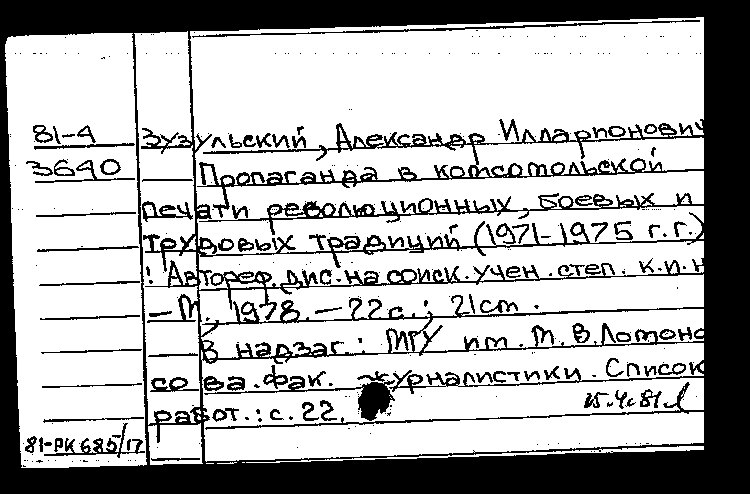 81-4 Зузульский, Александр Илларионович
3640 Пропаганда в комсомольской
печати революционных, боевых и
трудовых традиций (1971-1975 г.г.)
! Автореф. дис. на соиск. учен. степ. к.и.н
– М., 1978. – 22 с.; 21 см.
В надзаг.: МГУ им. М. В. Ломоно
со ва. фак. журналистики. Список
работ.: с. 22.
81-РК 685/17